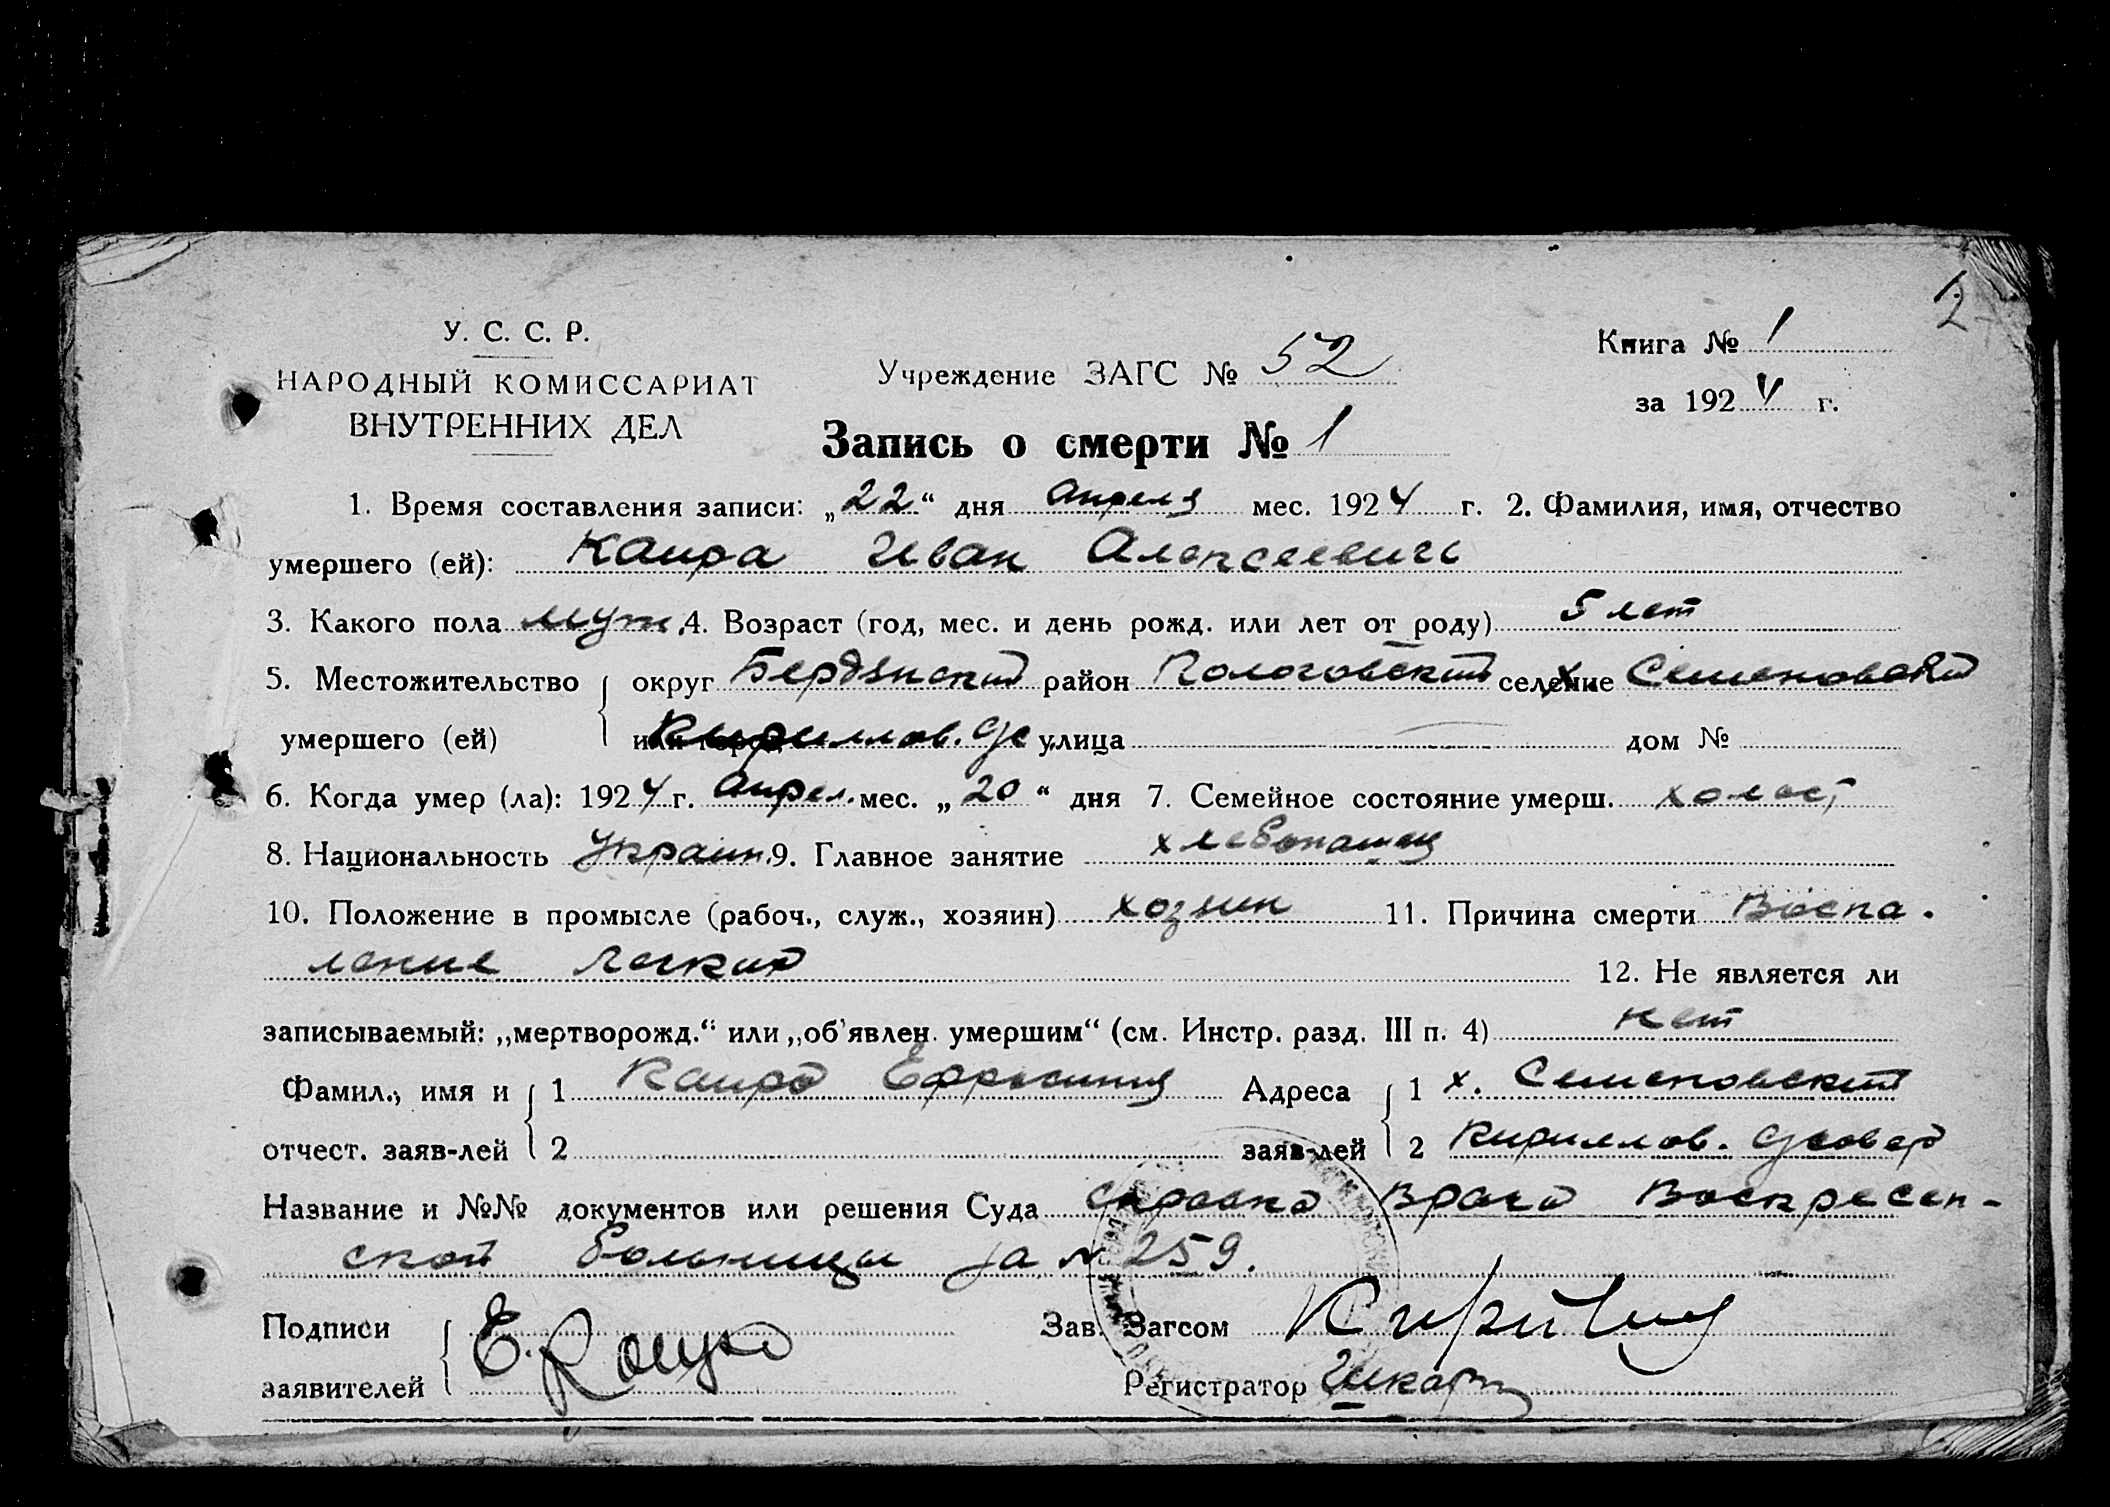 2
У. С. С. Р.
НАРОДНЫЙ КОМИССАРИАТ
ВНУТРЕННИХ ДЕЛ
Учреждение ЗАГС № 52
Книга № 1
за 1924 г.
Запись о смерти № 1
1. Время составления записи: „22“ дня Апреля мес. 1924 г. 2. Фамилия, имя, отчество
умершего (ей): Каира Иван Алексеевич
3. Какого пола муж. 4. Возраст (год, мес. и день рожд. или лет от роду) 5 лет
5. Местожительство округ Бердянский район Пологовский селение х. Семеновский
умершего (ей) Кириллов. с/с улица дом №
6. Когда умер (ла): 1924 г. Апрел. мес. „20“ дня 7. Семейное состояние умерш. холост
8. Национальность Украин. 9. Главное занятие хлебопашец
10. Положение в промысле (рабоч., служ., хозяин) хозяин 11. Причина смерти Воспа.
ление легких
12. Не является ли
записываемый: „мертворожд.“ или „об'явлен. умершим“ (см. Инстр. разд. III п. 4) нет
Фамил., имя и 1 Каира Ефросиния Адреса 1 х. Семеновский
отчест. заяв-лей 2 заяв-лей 2 Кириллов.
Название и №№ документов или решения Суда справка Врача Воскресен-
ской больницы за № 259.
Подписи Е. Зав. Загсом
заявителей Регистратор